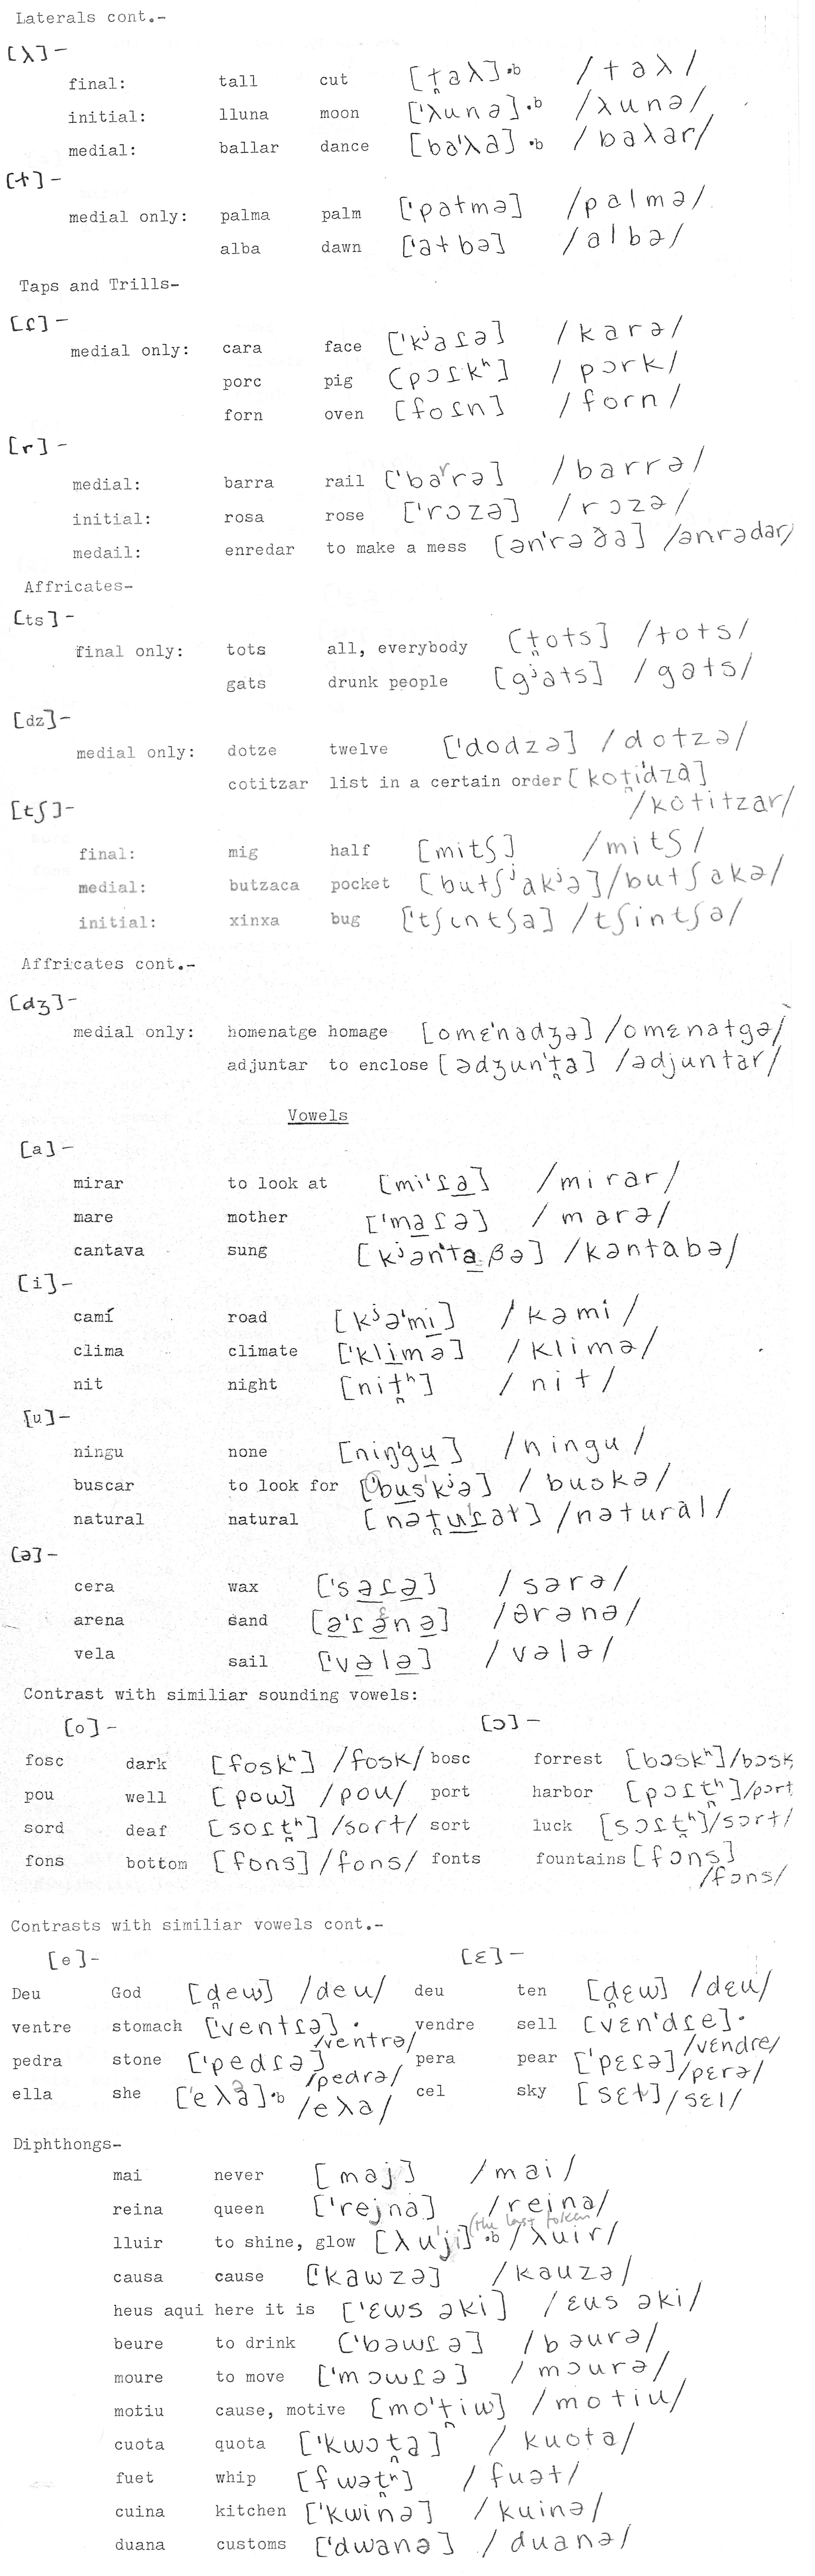 Laterals cont.-
[ʎ]-
final: tall cut [t̪aʎ]·b /taʎ/
initial: lluna moon ['ʎunə]·b /ʎunə/
medial: ballar dance [bə'ʎa]·b /baʎar/
[ɫ]-
medial only: palma palm ['paɫmə] /palmə/
alba dawn ['aɫbə] /albə/
Taps and Trills-
[ɾ]-
medial only: cara face ['kʲaɾə] /karə/
porc pig [pɔɾkʰ] /pɔrk/
forn oven [foɾn] /forn/
[r]-
medial: barra rail ['baʳrə] /barrə/
initial: rosa rose ['rɔzə] /rɔzə/
medail: enredar to make a mess [ən'rəða] /ənrədar/
Affricates-
[ts]-
final only: tots all, everybody [t̪ots] /tots/
gats drunk people [gʲats] /gats/
[dz]-
medial only: dotze twelve ['dodzə] /dotzə/
cotitzar list in a certain order [kot̪i'dza]
/kotitzar/
[tʃ]-
final: mig half [mitʃ] /mitʃ/
medial: butzaca pocket [butʃʲakʲə] /butʃakə/
initial: xinxa bug ['tʃɩntʃə] /tʃintʃə/
Affricates cont.-
[dʒ]-
medial only: homenatge homage [omɛ'nadʒə] /omɛnatgə/
adjuntar to enclose [ədʒun't̪a] /ədjuntar/
Vowels
[a]-
mirar to look at [mi'ɾa̲] /mirar/
mare mother ['ma̲ɾə] /marə/
cantava sung [kʲən'ta̲βə] /kəntabə/
[i]-
camí road [kʲə'mi̲] /kəmi/
clima climate ['kli̲mə] /klimə/
nit night [nit̪ʰ] /nit/
[u]-
ningu none [niŋ'gu̲] /ningu/
buscar to look for ['bu̲s'kʲə] /buskə/
natural natural [nət̪u̲'ɾaɫ] /nətural/
[ə]-
cera wax ['sə̲ɾə̲] /sərə/
arena sand [ə̲'ɾə̲nə̲] /ərənə/
vela sail ['və̲lə̲] /vələ/
Contrast with similiar sounding vowels:
[o]- [ɔ]-
fosc dark [foskʰ] /fosk/ bosc forrest [bɔskʰ]/bɔsk
pou well [pow] /pou/ port harbor [pɔɾt̪ʰ]/pɔrt
sord deaf [soɾt̪ʰ] /sort/ sort luck [sɔɾt̪ʰ]/sɔrt/
fons bottom [fons] /fons/ fonts fountains [fɔns]
/fɔns/
Contrasts with similiar vowels cont.-
[e]- [ɛ]-
Deu God [d̪ew] /deu/ deu ten [d̪ɛw] /dɛu/
ventre stomach ['ventɾə]· vendre sell [vɛn'dɾe]·
/ventrə/ /vɛndre/
pedra stone ['pedɾə] pera pear ['pɛɾə] /pɛrə/
/pedrə/
ella she ['eʎə]·b /eʎa/ cel sky [sɛɫ] /sɛl/
Diphthongs-
mai never [maj] /mai/
reina queen ['rejnə] /reinə/
(the last token
lluir to shine, glow [ʎu'ji]·b /ʎuir/
causa cause ['kawzə] /kauzə/
heus aqui here it is ['ɛws əki] /ɛus əki/
beure to drink ['bəwɾə] /bəurə/
moure to move ['mɔwɾə] /mɔurə/
motiu cause, motive [mo't̪iw] /motiu/
cuota quota ['kwɔt̪ə] /kuotə/
fuet whip [fwət̪ʰ] /fuət/
cuina kitchen ['kwinə] /kuinə/
duana customs ['dwanə] /duanə/